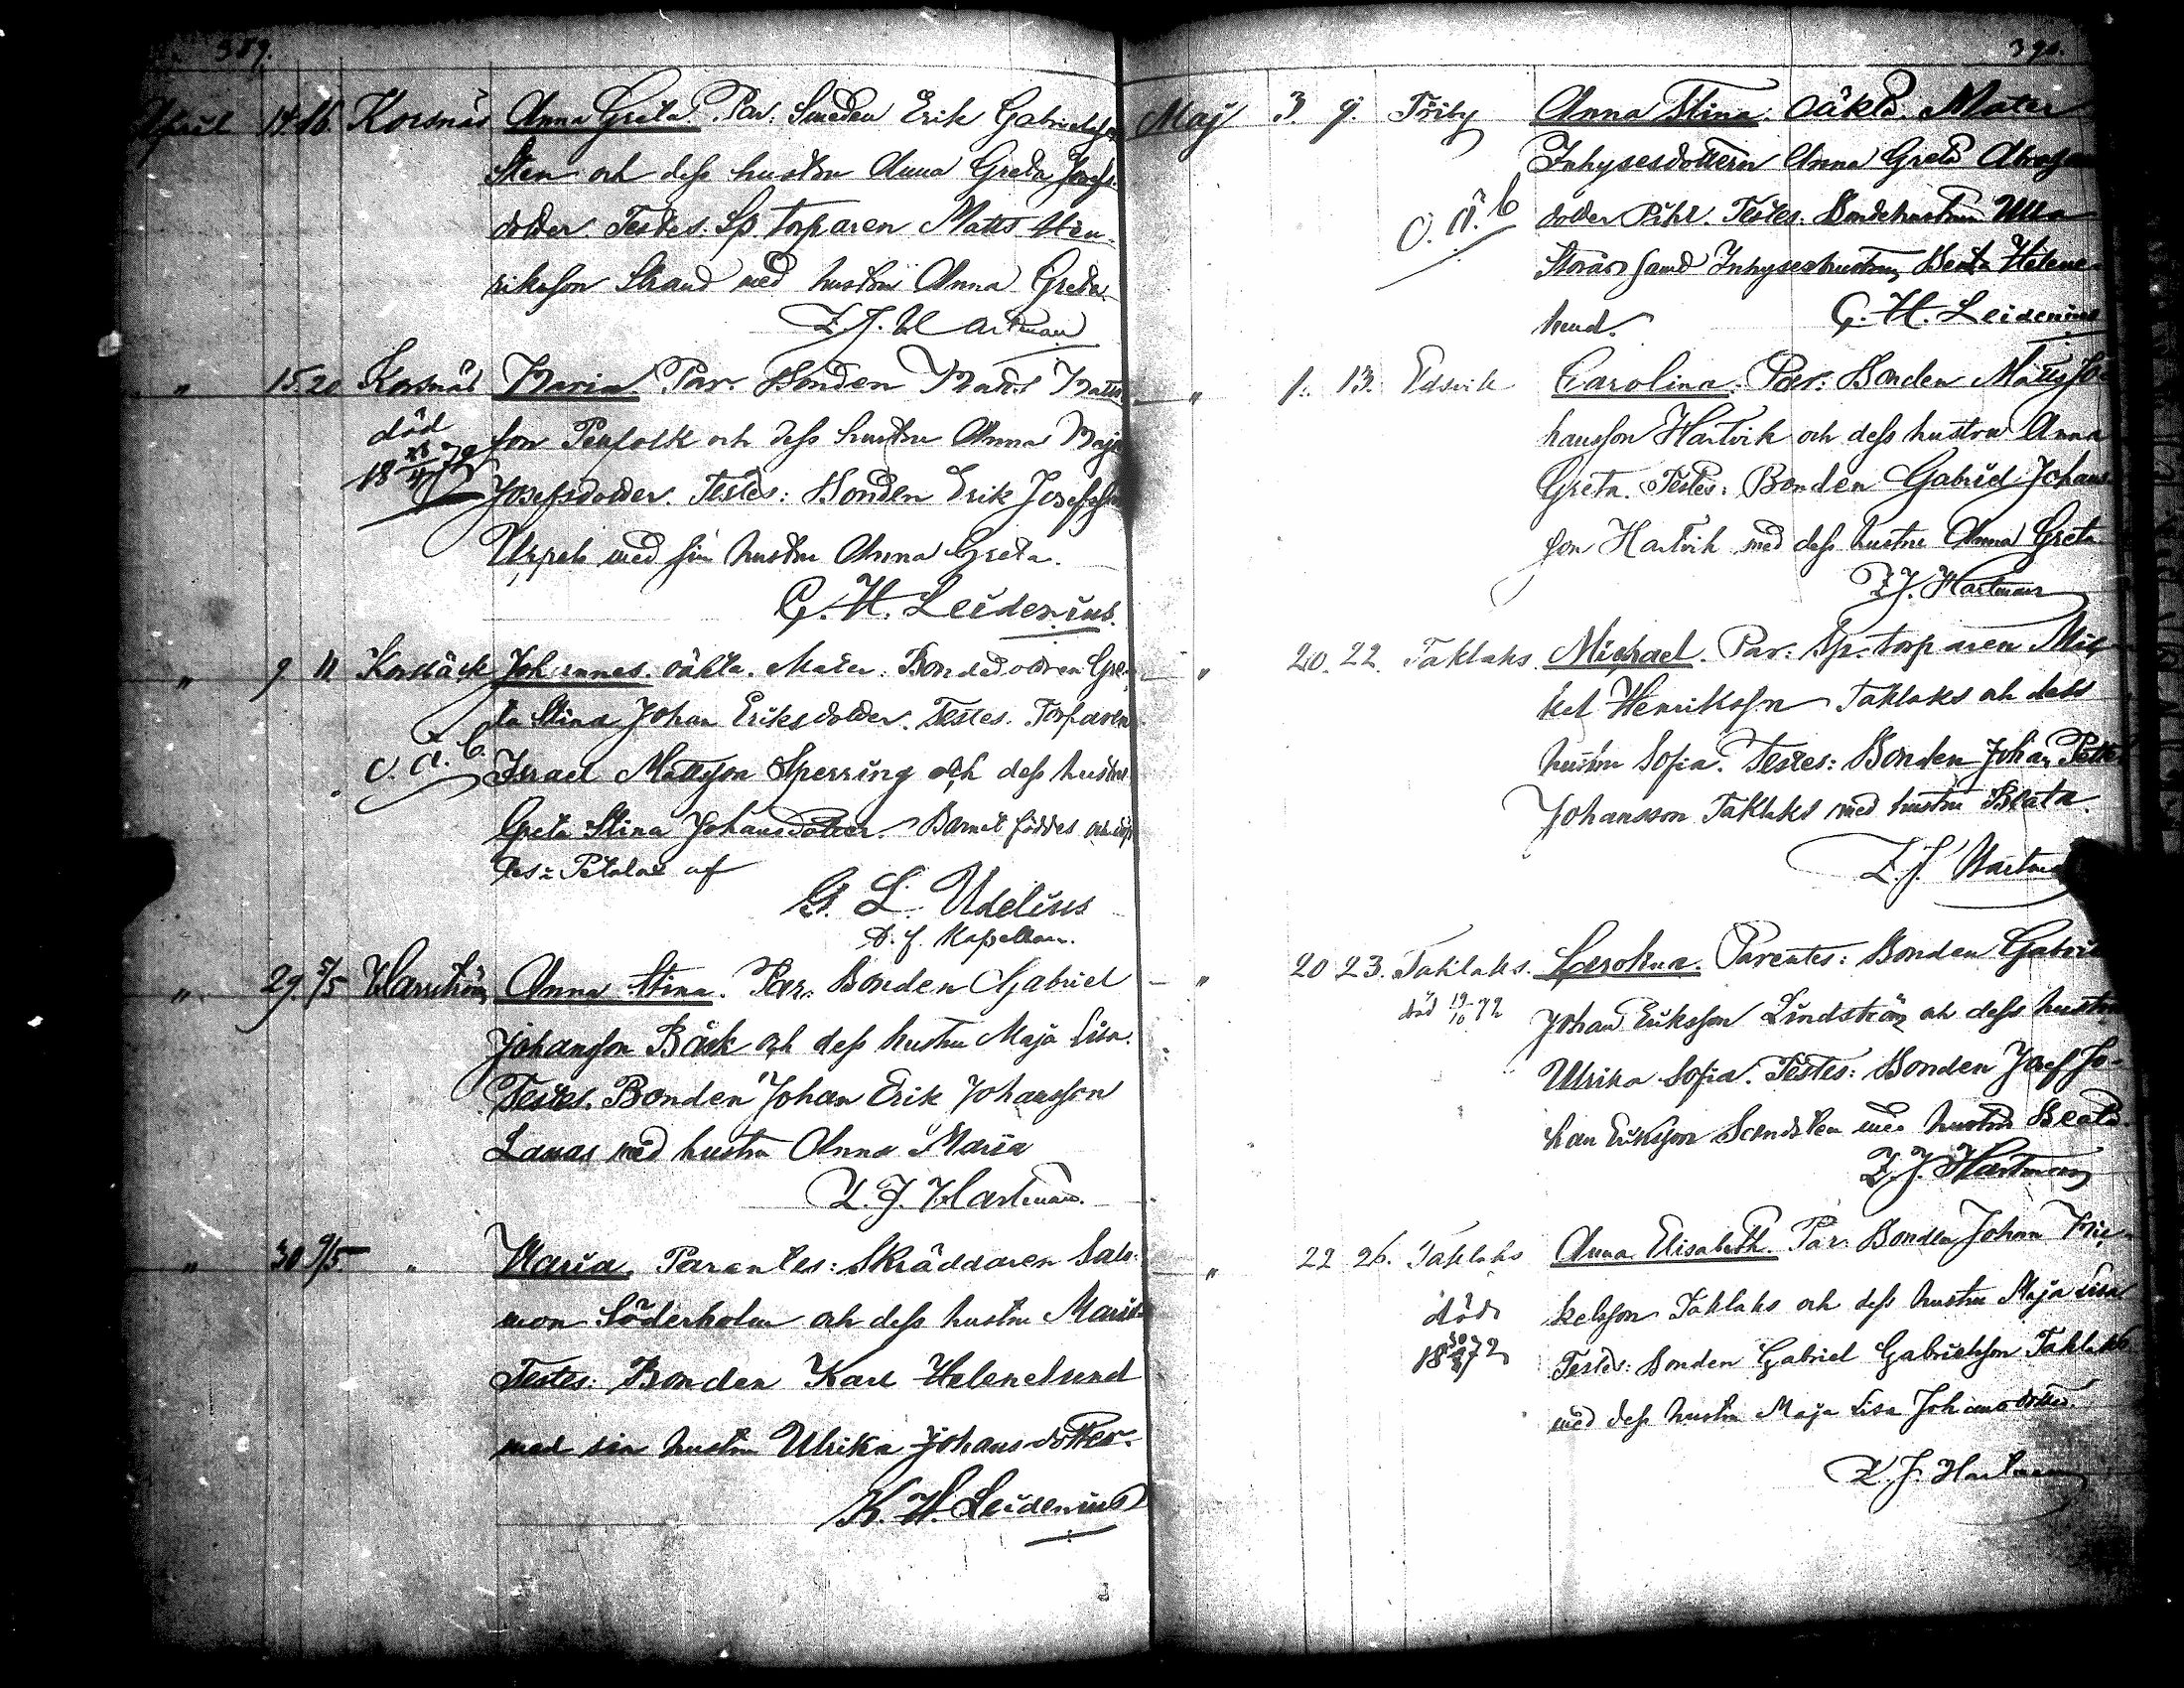 389.
April 14. 16. Korsnäs Anna Greta. Par: Smeden Erik Gabrielsson
Sten och dess hustru Anna Greta Josefs
dotter. Testes: Sp. torparen Matts Hen-
riksson Strand med hustru Anna Greta.
Z. J. Hartman
" 15. 20 Korsnäs Maria. Par. Bonden Matts Matts
död
son Penfolk och dess hustru Anna Maja
Josefsdotter. Testes: Bonden Erik Josefsson
Uppeb med sin hustru Anna Greta.
G. H. Leidenius.
" 9 11 Korsbäck Johannes. oäkta. Mater: Bondedottren Gre-
ta Stina Johan Eriksdotter. Testes. Torparen
o. ä. b.
Israel Mattsson Sperring och dess hustru
Greta Stina Johansdotter. Barnet föddes och döp-
tes i Petalax af
G. L. Udelius
D. f. Kapellan.
" 29. 5/5 Harrström Anna Stina. Par: Bonden Gabriel
Johansson Bäck och dess hustru Maja Lisa.
Testes. Bonden Johan Erik Johansson
Lanas med hustru Anna Maria
Z. J. Hartman.
" 30 9/5 " Maria. Parentes: Skräddaren Salo-
mon Söderholm och dess hustru Maria.
Testes: Bonden Karl Helenelund
med sin hustru Ulrika Johansdotter.
K. H. Leidenius
390.
Maj 3. 9. Töiby Anna Stina. Oäkta. Mater
Inhysesdottern Anna Greta Abraham
o. ä. b
dotter Pihl. Testes. Bondehustrun Ulla
Storås samt Inhyseshustrun Beata Helene-
lund.
G. H. Leidenius
" 1. 13. Edsvik Carolina. Par: Bonden Matts Jo-
hansson Hartvik och dess hustru Anna
Greta. Testes: Bonden Gabriel Johans-
son Hartvik med dess hustru Anna Greta
Z. J. Hartman
" 20. 22. Taklaks Michael. Par: Sp. torparen Mic-
kel Henriksson Taklaks och dess
hustru Sofia. Testes: Bonden Johan Petter
Johansson Taklaks med hustru Beata.
Z. J. Hartman
" 20 23. Taklaks. Karolina. Parentes: Bonden Gabriel
död 19/10 72
Johan Eriksson Lindström och dess hustru
Ulrika Sofia. Testes: Bonden Josef Jo-
han Eriksson Sandsten med hustru Beata.
Z. J. Hartman
" 22 26. Taklaks Anna Elisabeth. Par: Bonden Johan Mic-
död
kelsson Taklaks och dess hustru Maja Lisa
Testes: Bonden Gabriel Gabrielsson Taklaks
med dess hustru Maja Lisa Johansdotter.
Z. J. Hartman